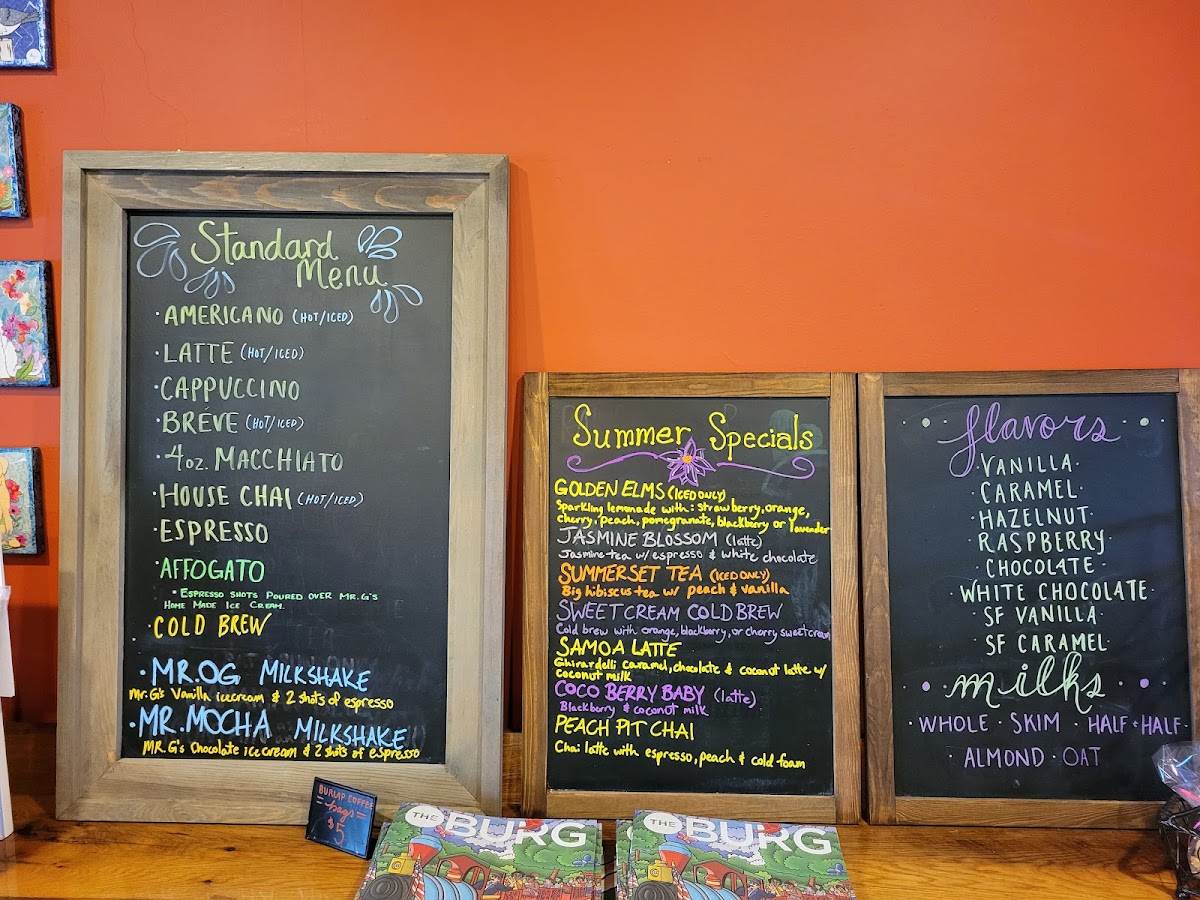 Standard
Menu
· AMERICANO (HOT/ICED)
· LATTE (HOT/ICED)
· CAPPUCCINO
· BRÉVE (HOT/ICED)
· 4oz. MACCHIATO
· HOUSE CHAI (HOT/ICED)
· ESPRESSO
· AFFOGATO
• ESPRESSO SHOTS POURED OVER MR.G'S
HOME MADE ICE CREAM.
· COLD BREW
· MR.OG MILKSHAKE
Mr.G's Vanilla icecream & 2 shots of espresso
· MR.MOCHA MILKSHAKE
MR.G's Chocolate ice cream & 2 shots of espresso
Summer Specials
GOLDEN ELMS (ICED ONLY)
Sparkling lemonade with: strawberry, orange,
cherry, peach, pomegranate, blackberry or lavender
JASMINE BLOSSOM (latte)
Jasmine tea w/ espresso & white chocolate
SUMMERSET TEA (ICED ONLY)
Big hibiscus tea w/ peach & vanilla
SWEET CREAM COLD BREW
Cold brew with orange, blackberry, or cherry sweetcream
SAMOA LATTE
Ghirardelli caramel, chocolate & coconut latte w/
coconut milk
COCO BERRY BABY (latte)
Blackberry & coconut milk
PEACH PIT CHAI
Chai latte with espresso, peach & cold foam
flavors
· VANILLA ·
· CARAMEL ·
· HAZELNUT ·
· RASPBERRY ·
· CHOCOLATE ·
· WHITE CHOCOLATE ·
· SF VANILLA ·
· SF CARAMEL ·
milks
· WHOLE · SKIM · HALF + HALF ·
· ALMOND · OAT
BURLAP COFFEE
= bags =
$5
THE BURG
THE BURG